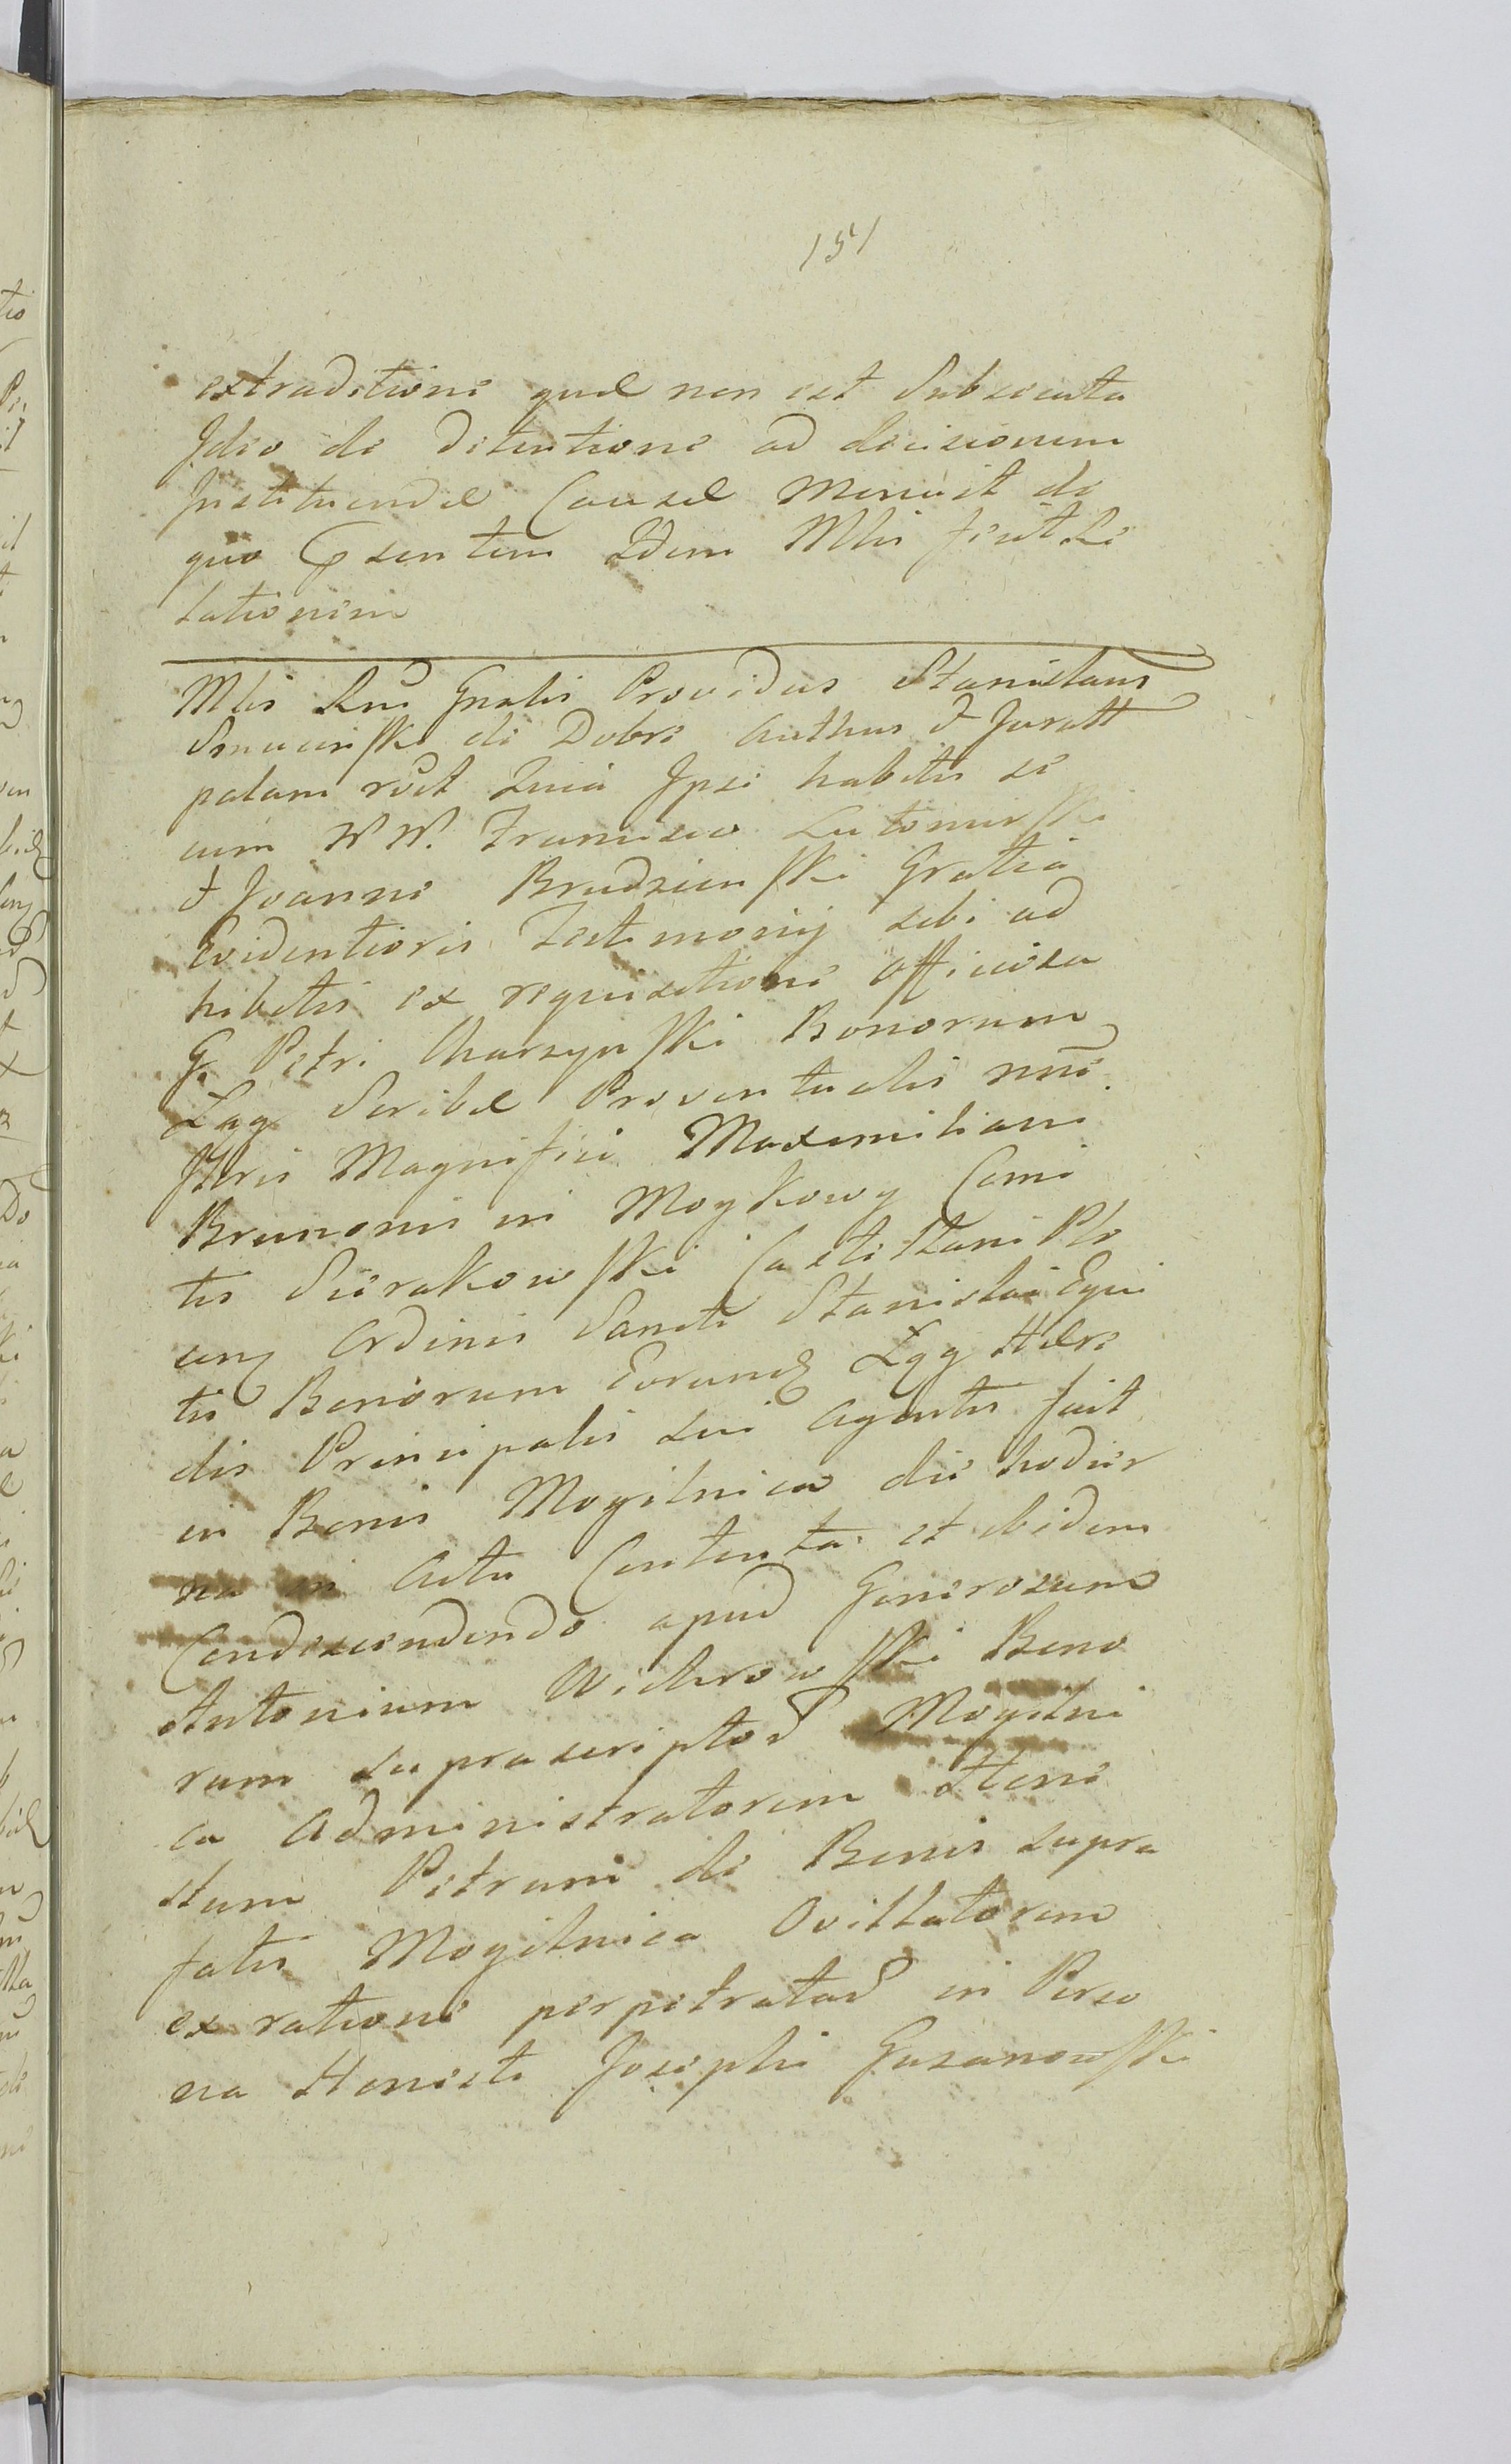 /51/
extraditione quae non est Subsecuta
Ideo de Detentione ad decisionem
Instituendae Causae Monuit de
quo Psentem Idem Mlis fecit Re
lationem
Mlis Rni Gnalis Providus Stanislaus
de Dobre Authus & Juratt
palam rĕct Quia Ipse habitis se
cum WW. Francisco Lutomirski
& Joanne Brudzienski Gratia
Evidentioris Testimonij sibi ad
hibitis ex requisitione Officiosa
G. Petri Charzynski Bonorum
Lqq Scribae Proventualis nnē
Illris Magnifici Maximiliani
Brunonis in Moykowy Comi
tis Sierakowski Castellani Plo
cenʒ Ordinis Sancti Stanislai Equi
tis Bonorum Eorunʒ Lqq Haere
dis Principalis sui Agentis fuit
in Bonis Mogilnica die hodier
na in Actu Contenta et ibidem
Condescendendo apud Generosum
Antonium Widerowski Bono
rum suprascriptoꝝ Mogilni
ca Administratorem Hone
stum Petrum de Bonis supra
fatis Mogilnica Ovillatorem
ex ratione perpetrataꝝ in Perso
na Honesti Josephi Guzanowski